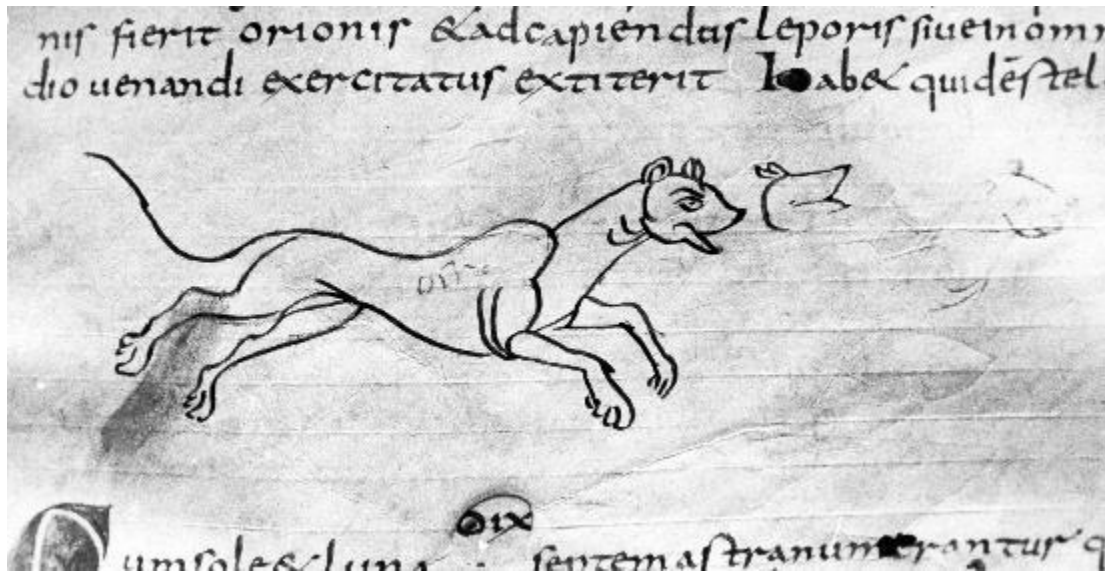 nis fierit orionis &adcapiendus leporis siueinomn
dio uenandi exercitatus extiterit hab& quidēstel
dix
umsole&luna septem astranumerantur q